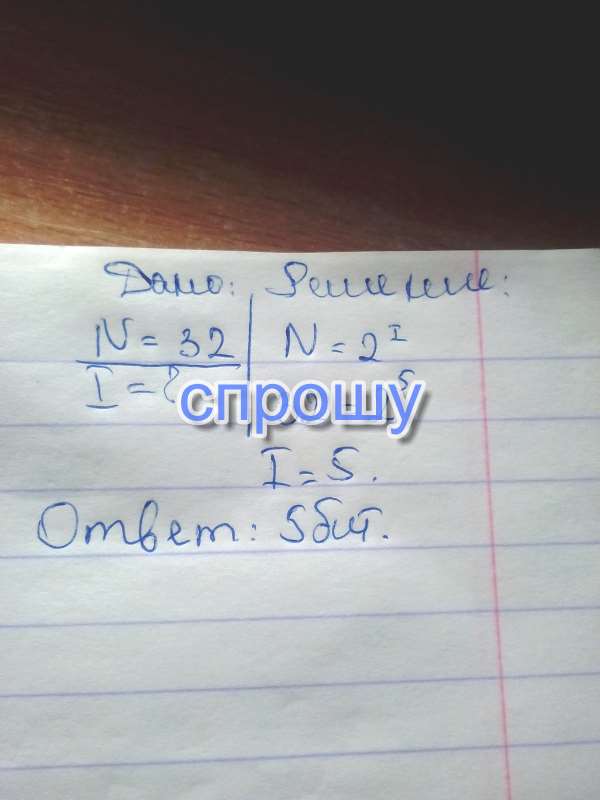 Дано: Решение:
N = 32 N = 2^I
I = ?
спрошу
I = 5.
Ответ: 5 бит.